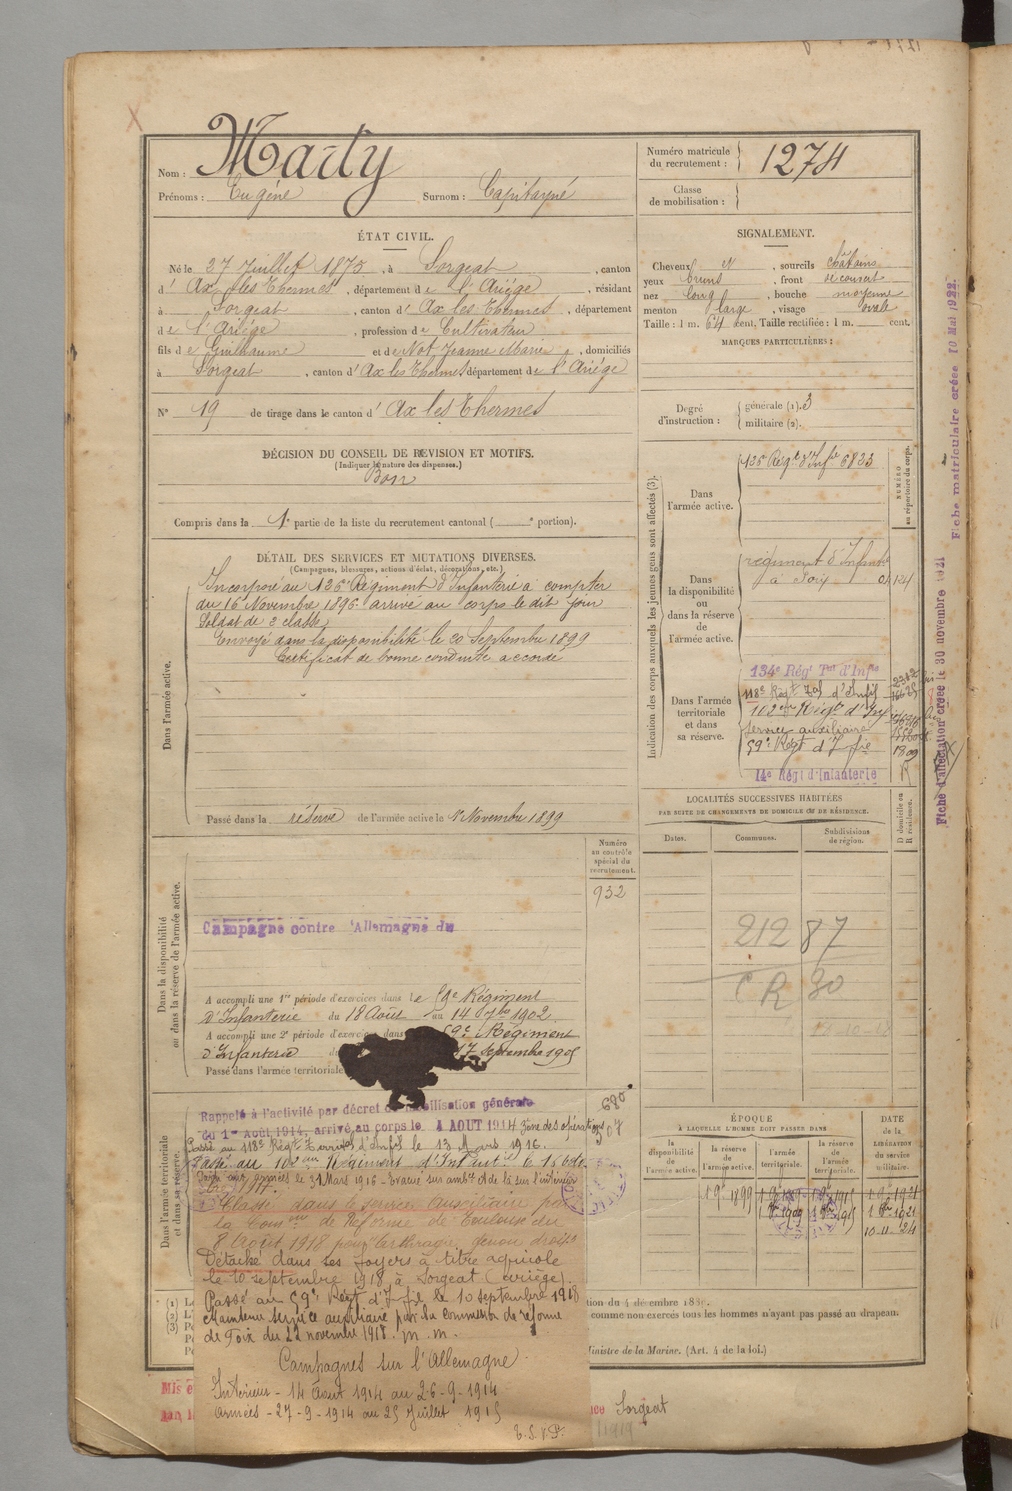 Nom : Marty
Prénoms : Eugène Surnom : Capitayné
Numéro matricule du recrutement : 1274
Classe de mobilisation :
ÉTAT CIVIL.
Né le 27 Juillet 1875, à Sorgeat, canton
d' Ax les Thermes, département de l'Ariége, résidant
à Sorgeat, canton d' Ax les Thermes, département
de l'Ariége, profession de Cultivateur
fils de Guilhaume et de Not Jeanne Marie, domiciliés
à Sorgeat, canton d' Ax les Thermes département de l'Ariége
N° 19 de tirage dans le canton d' Ax les Thermes
SIGNALEMENT.
Cheveux et, sourcils châtains
yeux bruns, front découvert
nez long, bouche moyenne
menton large, visage ovale
Taille : 1 m. 64 cent, Taille rectifiée : 1 m. cent.
MARQUES PARTICULIÈRES :
Degré d'instruction : générale (1). 3
militaire (2).
DÉCISION DU CONSEIL DE REVISION ET MOTIFS.
(Indiquer la nature des dispenses.)
Bon
Compris dans la 1e partie de la liste du recrutement cantonal ( e portion).
DÉTAIL DES SERVICES ET MUTATIONS DIVERSES.
(Campagnes, blessures, actions d'éclat, décorations, etc.)
Dans l'armée active.
Incorporé au 126e Régiment d'Infanterie à compter
du 16 Novembre 1896 arrivé au corps le dit jour
Soldat de 2e classe
Envoyé dans la disponibilité le 20 Septembre 1899
Certificat de bonne conduite accordé
Passé dans la réserve de l'armée active le 1er Novembre 1899
Indication des corps auxquels les jeunes gens sont affectés (3).
NUMÉRO au répertoire du corps.
Dans l'armée active. 126e Régt d'Infie 6823
Dans la disponibilité ou dans la réserve de l'armée active. régiment d'Infanterie
à Foix
Dans l'armée territoriale et dans sa réserve. 134e Régt Tal d'Infie
118e Régt Tal d'Infie
102eme Régt d'Inf
Service auxiliaire
59e Régt d'Infie 1809
14e Régt d'Infanterie
LOCALITÉS SUCCESSIVES HABITÉES
PAR SUITE DE CHANGEMENTS DE DOMICILE OU DE RÉSIDENCE.
Dates. Communes. Subdivisions de région. D domicile ou R résidence.
212 87
CR 30
Numéro au contrôle spécial du recrutement.
932
Dans la disponibilité ou dans la réserve de l'armée active.
Campagne contre l'Allemagne du
A accompli une 1re période d'exercices dans le 59e Régiment
d'Infanterie du 18 Août au 14 7bre 1902
A accompli une 2e période d'exercices dans 59e Régiment
d'Infanterie du 17 septembre 1905
Passé dans l'armée territoriale
Dans l'armée territoriale et dans sa réserve.
Rappelé à l'activité par décret de mobilisation générale
du 1er Août 1914, arrivé au corps le 4 AOUT 1914 Zone des opérations
Passé au 118e Régt Territal d'Infie le 13 Mars 1916.
Passé au 102eme Régiment d'Infanterie le 15
Passé aux armées le 31 Mars 1916 - Evacué sur ambce et de là sur l'intérieur
Classé dans le service auxiliaire par
la Comon de Réforme de Toulouse du
8 Août 1918 pour arthragie genou droit
Détaché dans ses foyers à titre agricole
le 10 septembre 1918 à Sorgeat (Ariège).
Passé au 59e Régt d'Infie le 10 septembre 1918
Maintenu service auxiliaire par la commission de réforme
de Foix du 22 novembre 1918. m. m.
Campagnes sur l'Allemagne
Intérieur - 14 Août 1914 au 26-9-1914
Armées - 27-9-1914 au 25 Juillet 1915
T.S.V.P.
ÉPOQUE
À LAQUELLE L'HOMME DOIT PASSER DANS
la disponibilité de l'armée active. la réserve de l'armée active. l'armée territoriale. la réserve de l'armée territoriale.
DATE de la LIBÉRATION DU SERVICE militaire.
10-11-24
tion du 4 décembre 18
comme non exercés tous les hommes n'ayant pas passé au drapeau.
Ministre de la Marine. (Art. 4 de la loi.)
Sorgeat
Mis e
Fiche d'affectation créée le 30 novembre 1921
Fiche matriculaire créée 10 Mai 1922.